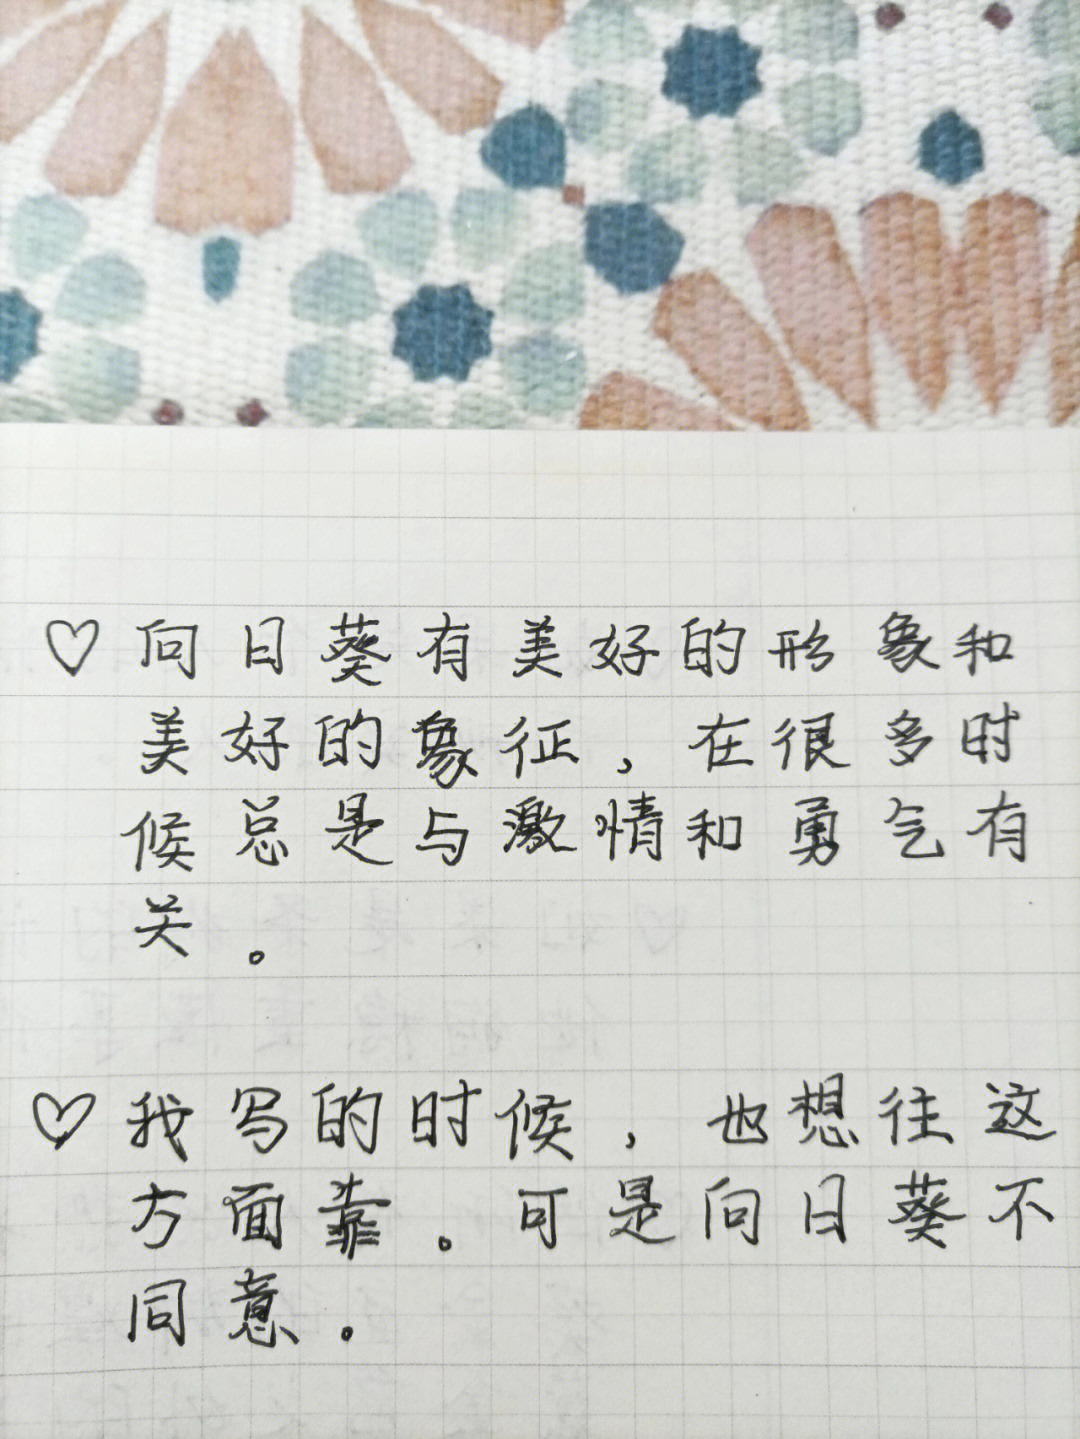 ♡向日葵有美好的形象和
美好的象征，在很多时
候总是与激情和勇气有
关。
♡我写的时候，也想往这
方面靠。可是向日葵不
同意。